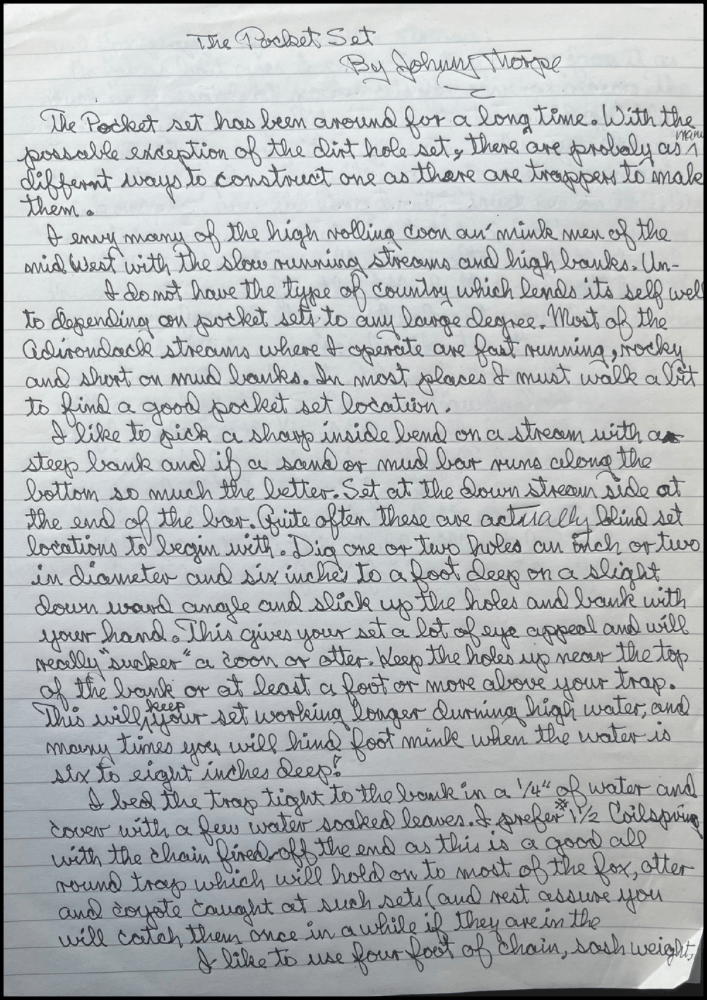 The Pocket Set
By Johnny Thorpe
The Pocket set has been around for a long time. With the
possable exception of the dirt hole set, there are probaly as many
differnt ways to construct one as there are trappers to make
them.
I envy many of the high rolling coon an' mink men of the
mid West with the slow running streams and high banks. Un-
I do not have the type of country which lends its self well
to depending on pocket sets to any large degree. Most of the
Adirondack streams where I operate are fast running, rocky
and short on mud banks. In most places I must walk a bit
to find a good pocket set location.
I like to pick a sharp inside bend on a stream with a
steep bank and if a sand or mud bar runs along the
bottom so much the better. Set at the down stream side at
the end of the bar. Quite often these are actually blind set
locations to begin with. Dig one or two holes an inch or two
in diameter and six inches to a foot deep on a slight
down ward angle and slick up the holes and bank with
your hand. This gives your set a lot of eye appeal and will
really "sucker" a coon or otter. Keep the holes up near the top
of the bank or at least a foot or more above your trap.
This will keep your set working longer durning high water, and
many times you will hind foot mink when the water is
six to eight inches deep!
I bed the trap tight to the bank in a 1/4" of water and
cover with a few water soaked leaves. I prefer #1 1/2 Coilspring
with the chain fired off the end as this is a good all
round trap which will hold on to most of the fox, otter
and coyote caught at such sets (and rest assure you
will catch them once in a while if they are in the
I like to use four foot of chain, sash weight,